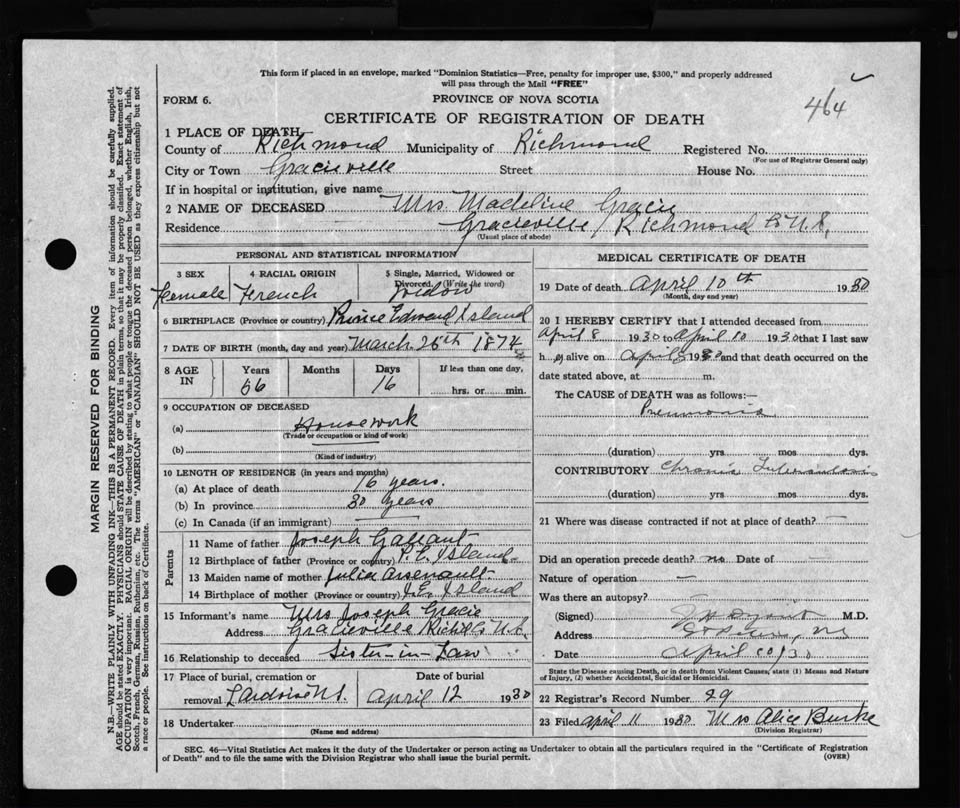 This form if placed in an envelope, marked "Dominion Statistics—Free, penalty for improper use, $300," and properly addressed
will pass through the Mail "FREE"
464
FORM 6. PROVINCE OF NOVA SCOTIA
CERTIFICATE OF REGISTRATION OF DEATH
1 PLACE OF DEATH—
County of Richmond Municipality of Richmond Registered No.
(For use of Registrar General only)
City or Town Gracieville Street House No.
If in hospital or institution, give name
2 NAME OF DECEASED Mrs Madeline Gracie
Residence Gracieville, Richmond Co N.S.
(Usual place of abode)
PERSONAL AND STATISTICAL INFORMATION
3 SEX 4 RACIAL ORIGIN 5 Single, Married, Widowed or
Divorced. (Write the word)
Female French Widow
6 BIRTHPLACE (Province or country) Prince Edward Island
7 DATE OF BIRTH (month, day and year) March 25th 1874
8 AGE IN Years Months Days If less than one day,
56 16 hrs. or min.
9 OCCUPATION OF DECEASED
(a) Housework
(Trade or occupation or kind of work)
(b)
(Kind of industry)
10 LENGTH OF RESIDENCE (in years and months)
(a) At place of death 16 years.
(b) In province 30 years
(c) In Canada (if an immigrant)
Parents
11 Name of father Joseph Gallant
12 Birthplace of father (Province or country) P.E. Island
13 Maiden name of mother Julia Arsenault
14 Birthplace of mother (Province or country) P.E. Island
15 Informant's name Mrs Joseph Gracie
Address Gracieville Rich Co N.S.
16 Relationship to deceased Sister-in-Law
17 Place of burial, cremation or Date of burial
removal L'Ardoise N.S. April 12 1930
18 Undertaker
(Name and address)
MEDICAL CERTIFICATE OF DEATH
19 Date of death April 10th 1930
(Month, day and year)
20 I HEREBY CERTIFY that I attended deceased from
April 8 1930 to April 10 1930 that I last saw
h er alive on April 8 1930 and that death occurred on the
date stated above, at m.
The CAUSE of DEATH was as follows:—
Pneumonia
(duration) yrs mos dys.
CONTRIBUTORY Chronic Tuberculosis
(duration) yrs. mos dys.
21 Where was disease contracted if not at place of death? —
Did an operation precede death? no Date of
Nature of operation —
Was there an autopsy?
(Signed) M.D.
Address St Peters, N.S.
Date April 10/30
State the Disease causing Death, or in death from Violent Causes, state (1) Means and Nature
of Injury, (2) whether Accidental, Suicidal or Homicidal.
22 Registrar's Record Number 29
23 Filed April 11 1930 Mrs Alice Burke
(Division Registrar)
SEC. 46—Vital Statistics Act makes it the duty of the Undertaker or person acting as Undertaker to obtain all the particulars required in the "Certificate of Registration
of Death" and to file the same with the Division Registrar who shall issue the burial permit.
(OVER)
MARGIN RESERVED FOR BINDING
N.B.—WRITE PLAINLY WITH UNFADING INK—THIS IS A PERMANENT RECORD. Every item of information should be carefully supplied.
AGE should be stated EXACTLY. PHYSICIANS should STATE CAUSE OF DEATH in plain terms, so that it may be properly classified. Exact statement of
OCCUPATION is very important. RACIAL ORIGIN will be described by stating to what people or tongue the deceased person belonged, whether English, Irish,
Scotch, French, German, Russian, Ruthenian, etc. The terms "AMERICAN" or "CANADIAN" SHOULD NOT BE USED as they express citizenship but not
a race or people. See instructions on back of Certificate.